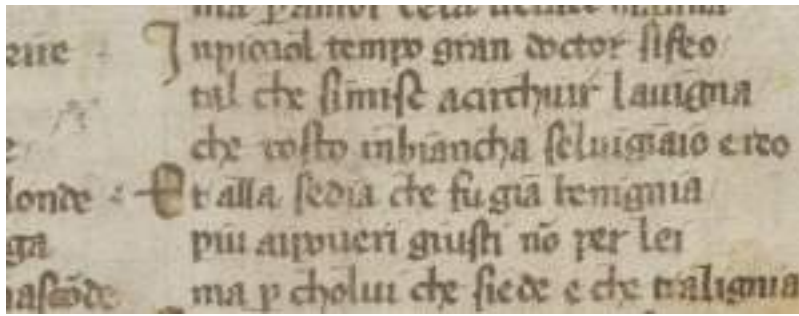 ma p amor dela uerace manna
erue Inpicciol tempo gran doctor sifeo
tal che simise acirchuir lauigna
e che tosto inbiancha seluigniaio ereo
londe Et alla sedia che fu gia benignia
ga piu aipoueri giusti nō per lei
nascōde ma p cholui che siede e che tralignia